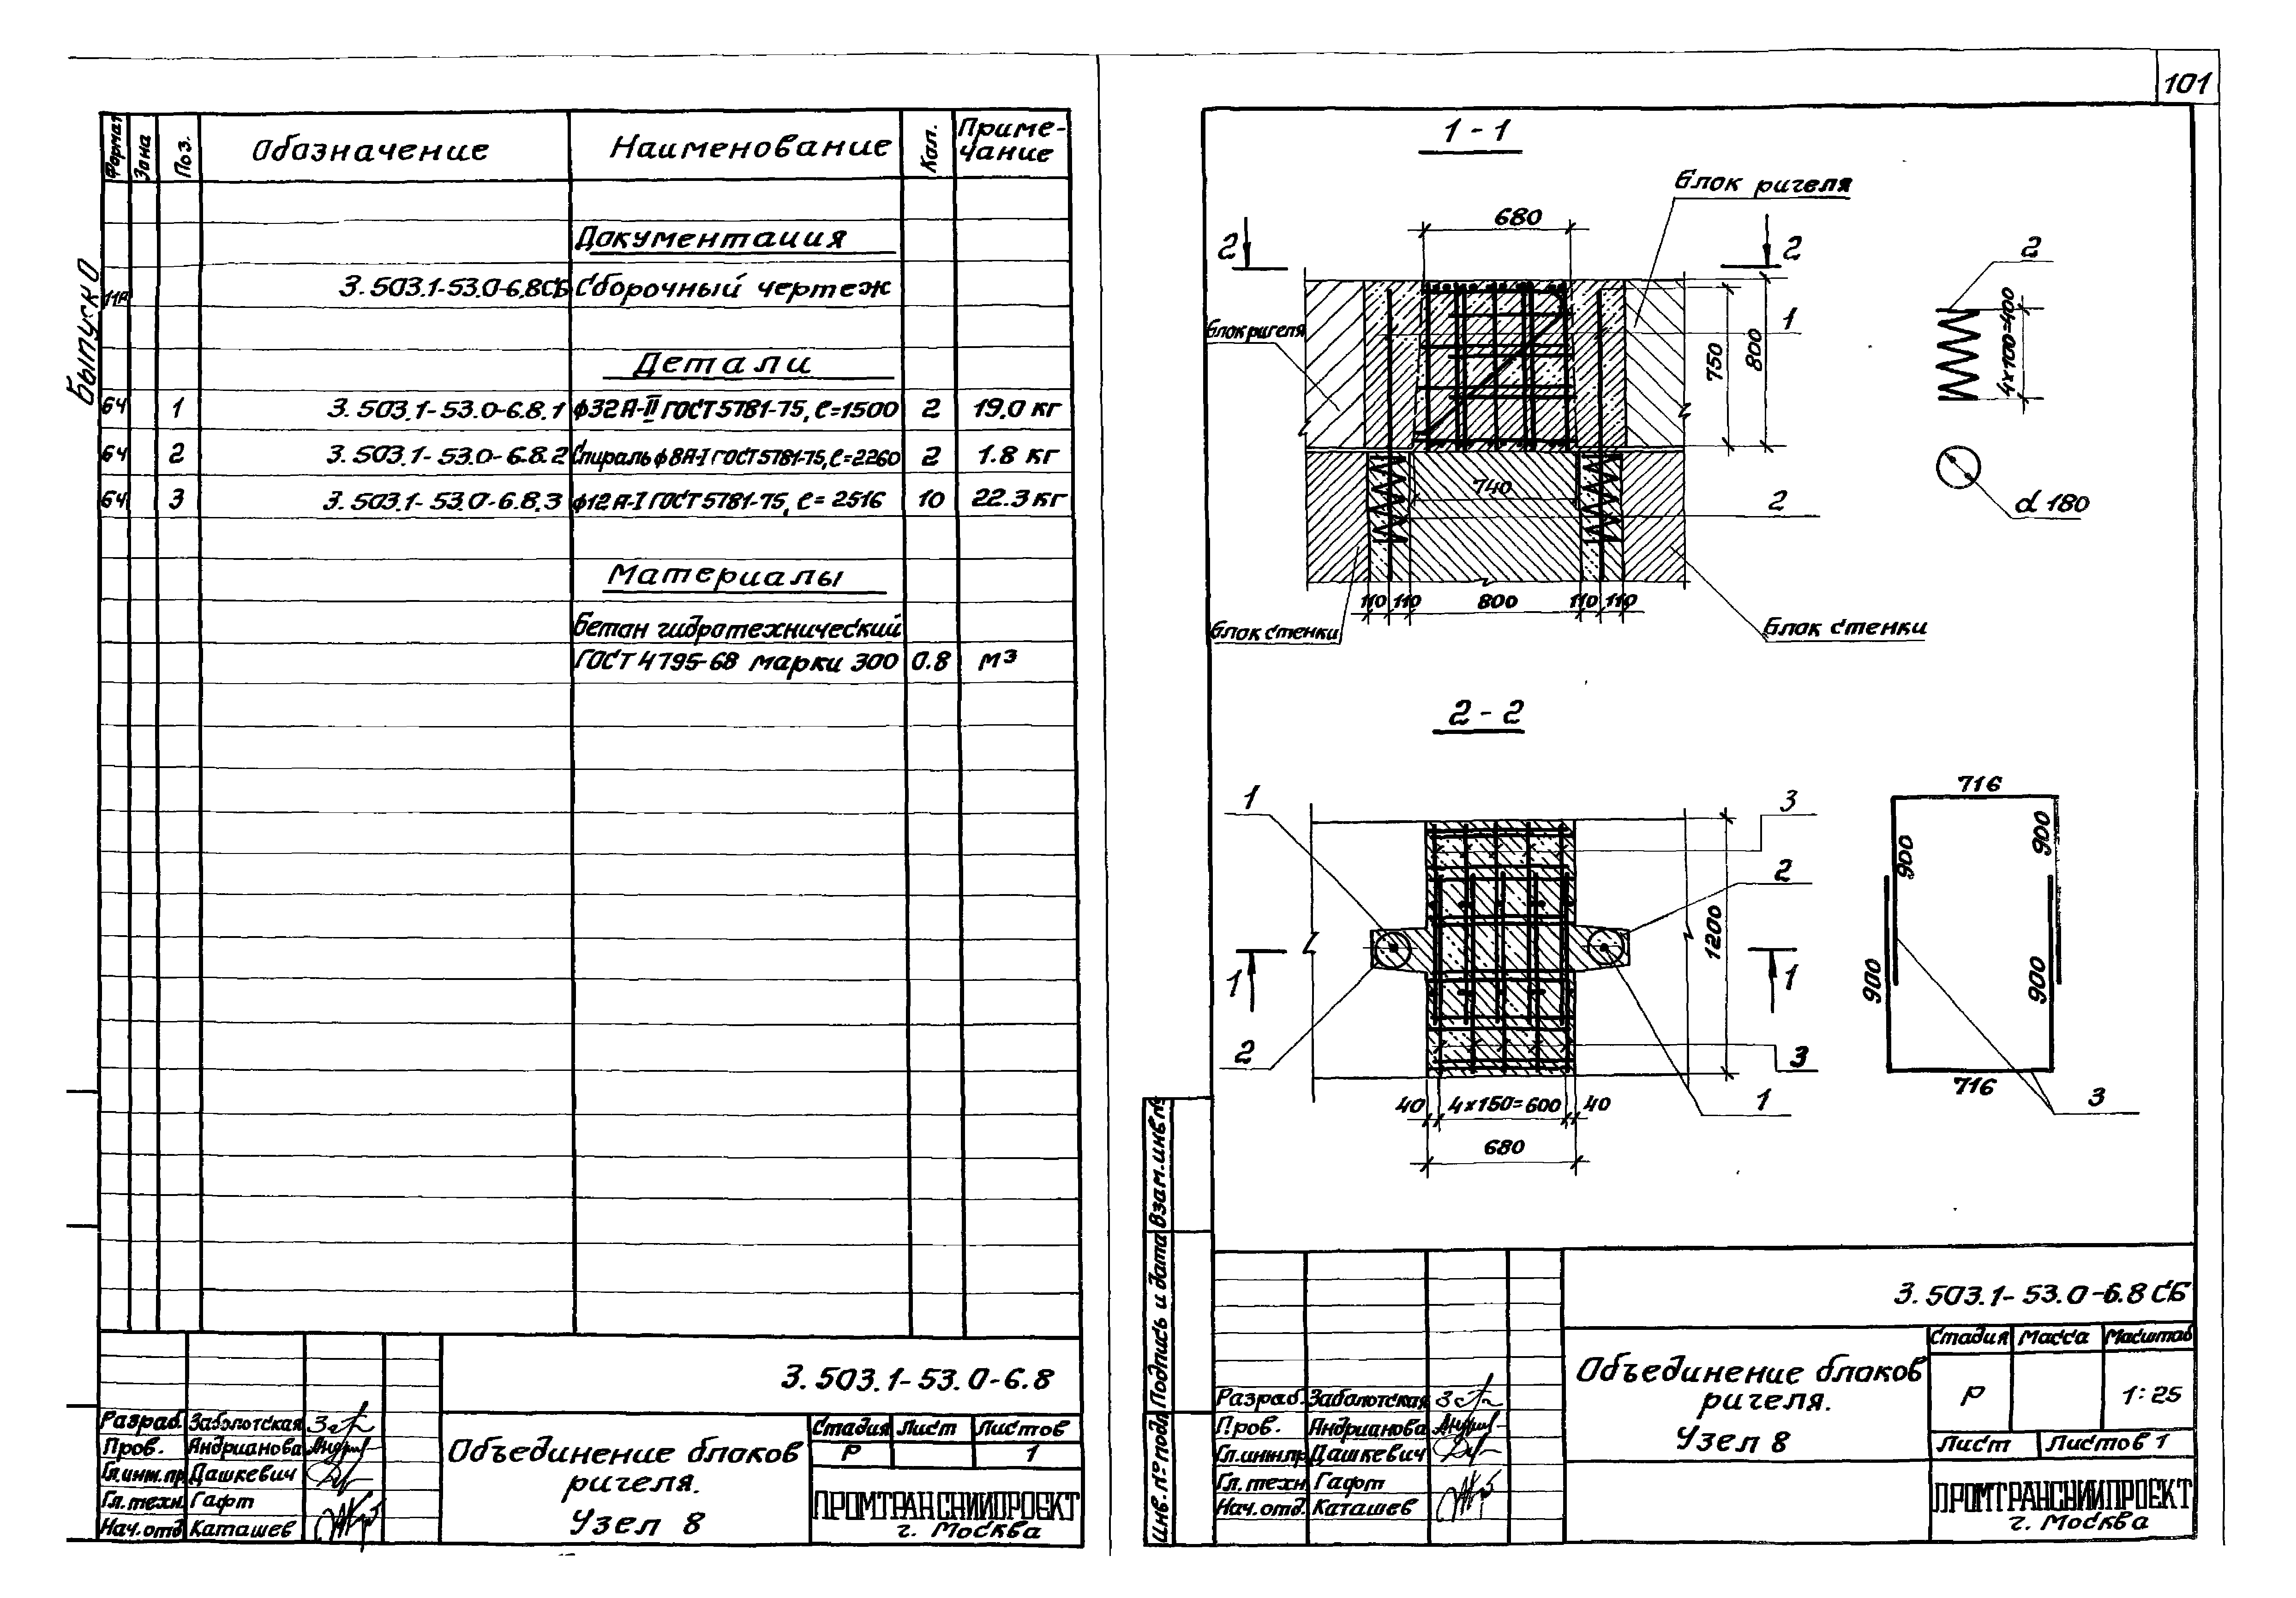 101
Выпуск 0
Формат Зона Поз. Обозначение Наименование Кол. Примечание
Документация
11Р 3.503.1-53.0-6.8СБ Сборочный чертеж
Детали
БЧ 1 3.503.1-53.0-6.8.1 ф32А-II ГОСТ 5781-75, ℓ=1500 2 19.0 кг
БЧ 2 3.503.1-53.0-6.8.2 Спираль ф8А-I ГОСТ 5781-75, ℓ=2260 2 1.8 кг
БЧ 3 3.503.1-53.0-6.8.3 ф12А-I ГОСТ 5781-75, ℓ=2516 10 22.3 кг
Материалы
Бетон гидротехнический
ГОСТ 4795-68 марки 300 0.8 м3
3.503.1-53.0-6.8
Разраб. Заболотская
Пров. Андрианова
Гл.инж.пр. Дашкевич
Гл.техн. Гафт
Нач.отд. Каташев
Объединение блоков
ригеля.
Узел 8
Стадия Лист Листов
Р 1
ПРОМТРАНСНИИПРОЕКТ
г. Москва
1-1
Блок ригеля
680
2 2
2
Блок ригеля
1
750
800
4х100=400
740
2
d 180
110 110 800 110 110
Блок стенки
Блок стенки
2-2
716
1
3
900
900
2
1200
1 1
900
900
2
3
716
40 4х150=600 40
1
3
680
Инв.№подл. Подпись и дата Взам.инв.№
3.503.1-53.0-6.8СБ
Разраб. Заболотская
Пров. Андрианова
Гл.инж.пр. Дашкевич
Гл.техн. Гафт
Нач.отд. Каташев
Объединение блоков
ригеля.
Узел 8
Стадия Масса Масштаб
Р 1:25
Лист Листов 1
ПРОМТРАНСНИИПРОЕКТ
г. Москва